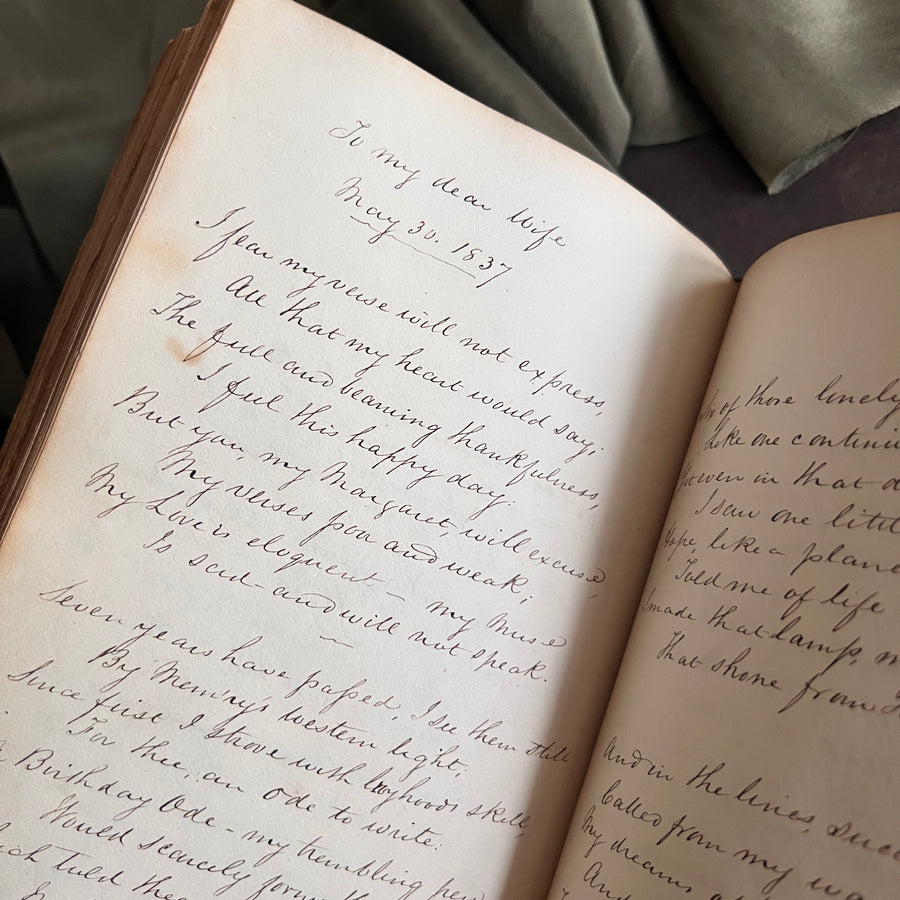 To my dear Wife
May 30. 1837
I fear my verse will not express,
All that my heart would say;
The full and beaming thankfulness,
I feel this happy day:
But you, my Margaret, will excuse,
My verses poor and weak;
My Love is eloquent – my Muse
Is sad – and will not speak.
Seven years have passed, I see them still
By Mem'ry's western light;
Since first I strove with boyhoods skill,
For thee, an Ode to write:
Birthday Ode – my trembling
Would scarcely form
told thee
of those lonely
Like one
even in that
I saw one
Hope, like a
Told me of life
made that lamp,
That shone from
And in the lines,
Called from my
My dreams
And